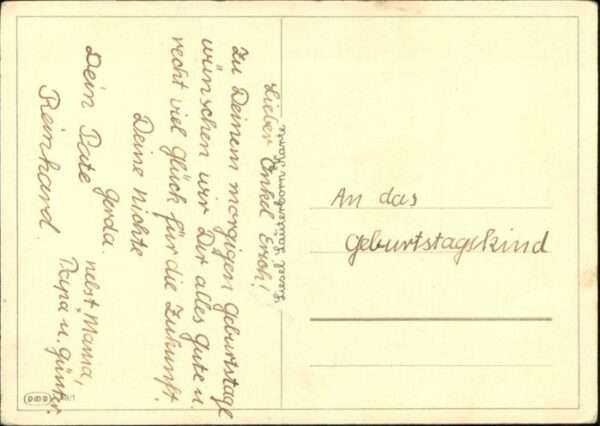 Lieber Onkel Erich!
Zu Deinem morgigen Geburtstage
wünschen wir Dir alles Gute u.
recht viel Glück für die Zukunft.
Deine Nichte
Gerda.
Dein Pate
Reinhard.
nebst Mama,
Papa u. Günter.
An das
Geburtstagskind
Liesel Lauterborn Karte